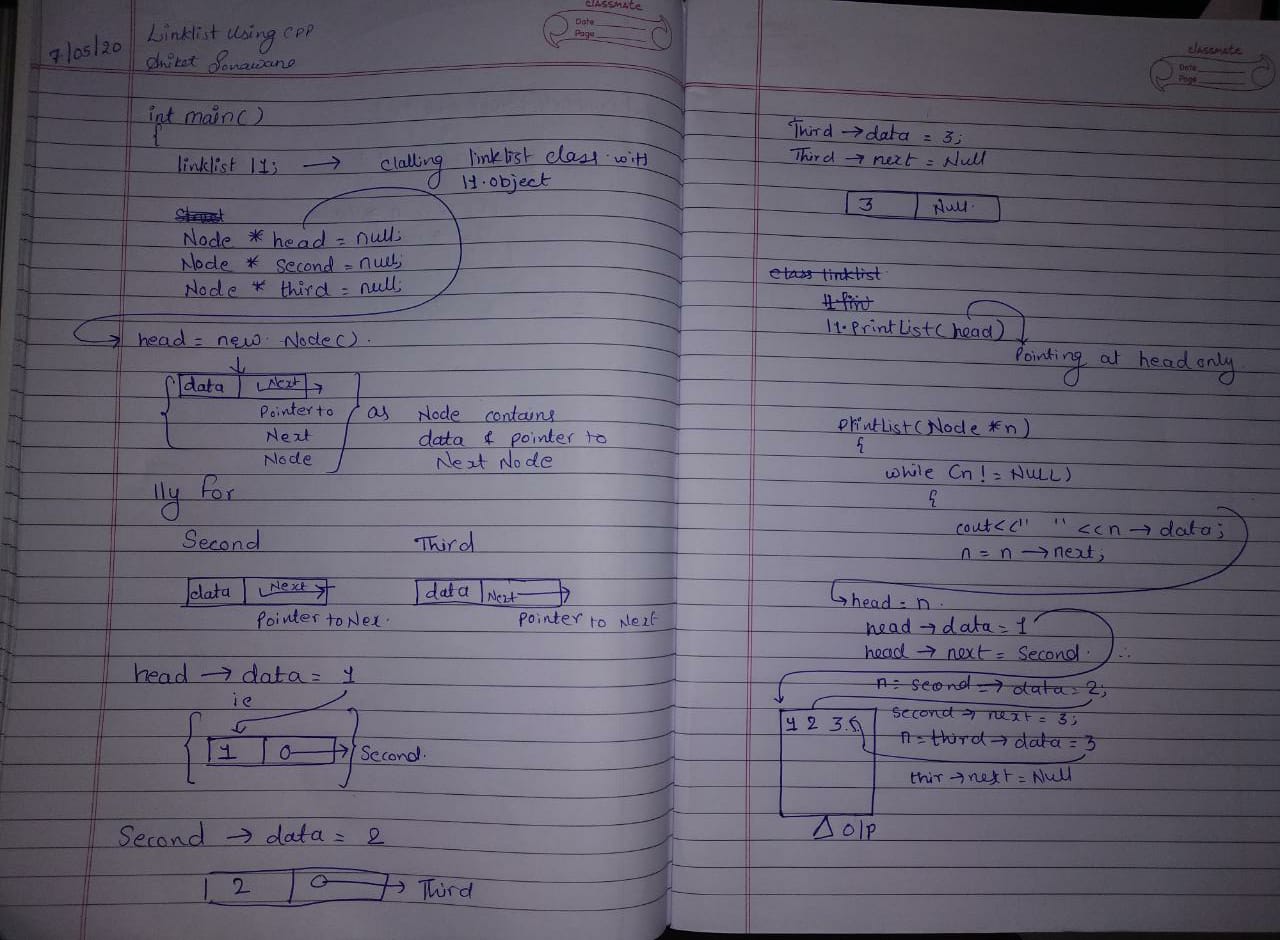 classmate
Date
Page
7/05/20
Linklist Using CPP
Aniket Sonawane
int main()
{
linklist l1; → clalling linklist class with
l1.object
Struct
Node * head = null;
Node * second = null;
Node * third = null;
head = new Node().
data Next
Pointer to
Next
Node
as Node contains
data & pointer to
Next Node
lly for
Second Third
data Next data Next
Pointer to Nex. pointer to Next
head → data = 1
ie
1 0 → Second.
Second → data = 2
2 0 → Third
classmate
Date
Page
Third → data = 3;
Third → next = Null
3 Null.
class linklist
l1.PrintList(head)
Pointing at head only
printList(Node *n)
{
while (n != NULL)
{
cout<<" " <<n → data;
n = n → next;
head = n.
head → data = 1
head → next = Second. ∴
n = second → data = 2;
second → next = 3;
n = third → data = 3
thir → next = Null
1 2 3
O/P